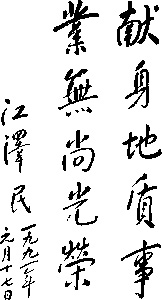 献身地质事
業無尚光榮
江澤民
一九九二年
元月十七日